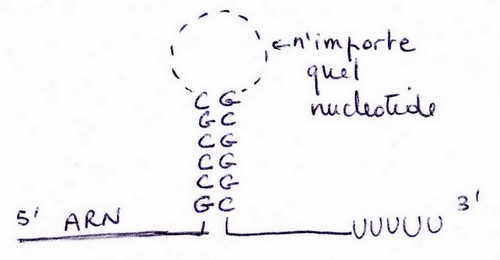 n'importe
quel
nucleotide
C G
G C
C G
C G
C G
G C
5' ARN UUUUU 3'